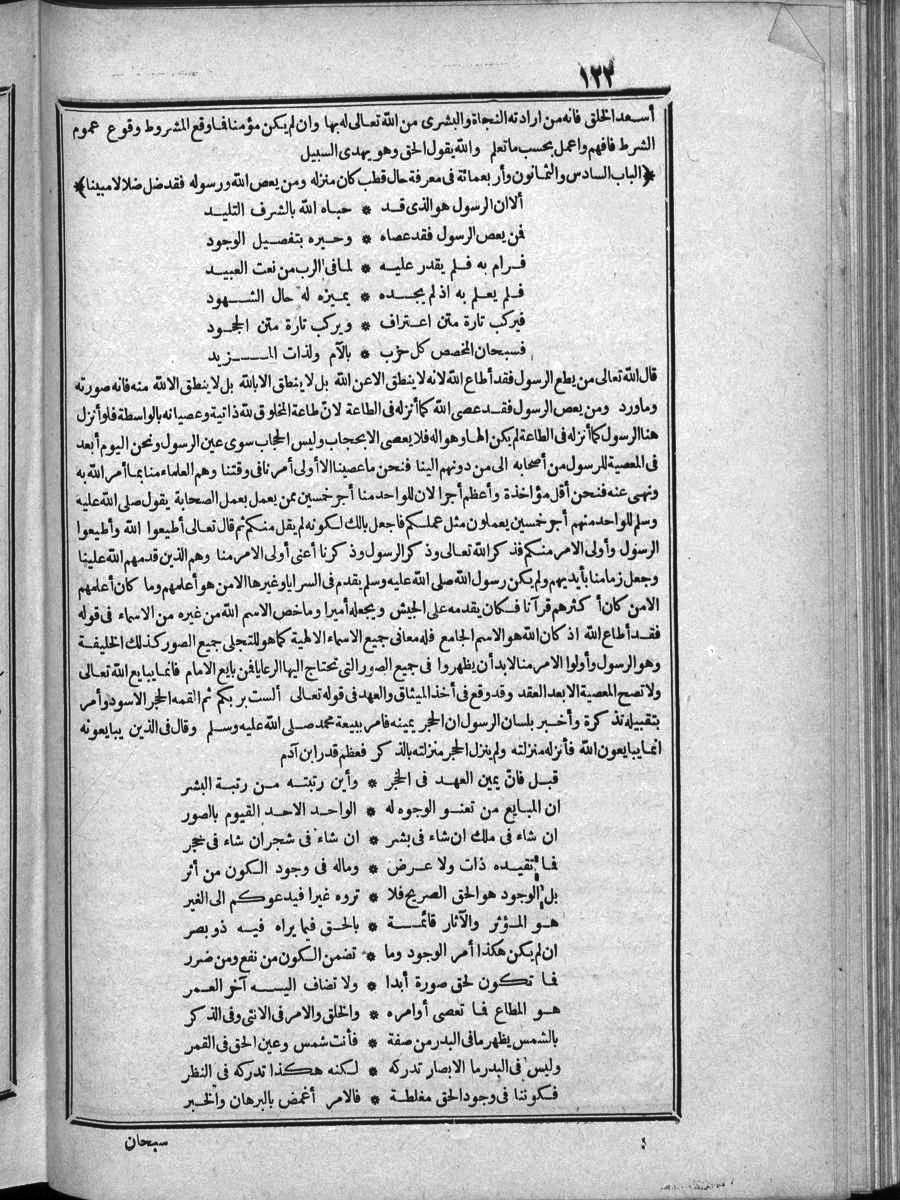 ١٢٢
أسعد الخلق فانه من ارادته النجاة والبشرى من الله تعالى له بها وان لم يكن مؤمنا فاوقع المشروط وقوع عموم
الشرط فافهم واعمل بحسب ما تعلم والله يقول الحق وهو يهدى السبيل
﴿الباب السادس والثمانون وأربعمائة فى معرفة حال قطب كان منزله ومن يعص الله ورسوله فقد ضل ضلالا مبينا﴾
ألا ان الرسول هو الذى قد * حباه الله بالشرف التليد
فمن يعص الرسول فقد عصاه * وحيره بتفصيل الوجود
فرام به فلم يقدر عليه * لما فى الرب من نعت العبيد
فلم يعلم به اذ لم يجده * يميزه له حال الشهود
فيركب تارة متن اعتراف * ويركب تارة متن الجحود
فسبحان المخصص كل حزب * بالآم ولذات المزيد
قال الله تعالى من يطع الرسول فقد أطاع الله لانه لا ينطق الا عن الله بل لا ينطق الا بالله بل لا ينطق الا الله منه فانه صورته
وما ورد ومن يعص الرسول فقد عصى الله كما أنزله فى الطاعة لان طاعة المخلوق لله ذاتية وعصيانه بالواسطة فلو أنزل
هنا الرسول كما أنزله فى الطاعة لم يكن الها وهو اله فلا يعصى الا بحجاب وليس الحجاب سوى عين الرسول ونحن اليوم أبعد
فى المعصية للرسول من أصحابه الى من دونهم الينا فنحن ما عصينا الا أولى أمرنا فى وقتنا وهم العلماء منا بما أمر الله به
ونهى عنه فنحن أقل مؤاخذة وأعظم أجرا لان للواحد منا أجر خمسين ممن يعمل بعمل الصحابة يقول صلى الله عليه
وسلم للواحد منهم أجر خمسين يعملون مثل عملكم فاجعل بالك لكونه لم يقل منكم ثم قال تعالى أطيعوا الله وأطيعوا
الرسول وأولى الامر منكم فذكر الله تعالى وذكر الرسول وذكرنا أعنى أولى الامر منا وهم الذين قدمهم الله علينا
وجعل زمامنا بأيديهم ولم يكن رسول الله صلى الله عليه وسلم يقدم فى السرايا وغيرها الا من هو أعلمهم وما كان أعلمهم
الا من كان أكثرهم قرآنا فكان يقدمه على الجيش ويجعله أميرا وما خص الاسم الله من غيره من الاسماء فى قوله
فقد أطاع الله اذ كان الله هو الاسم الجامع فله معانى جميع الاسماء الالهية كما هو للتجلى جميع الصور كذلك الخليفة
وهو الرسول وأولوا الامر منا لابد أن يظهروا فى جميع الصور التى تحتاج اليها الرعايا فمن بايع الامام فانما يبايع الله تعالى
ولا تصح المعصية الا بعد العقد وقد وقع فى أخذ الميثاق والعهد فى قوله تعالى ألست بربكم ثم القمه الحجر الاسود وأمر
بتقبيله تذكرة وأخبر بلسان الرسول ان الحجر يمينه فامر ببيعة محمد صلى الله عليه وسلم وقال فى الذين يبايعونه
انما يبايعون الله فأنزله منزلته ولم ينزل الحجر منزلته بالذكر فعظم قدر ابن آدم
قبل فان يمين العهد فى الحجر * وأين رتبته من رتبة البشر
ان المبايع من تعنو الوجوه له * الواحد الاحد القيوم بالصور
ان شاء فى ملك ان شاء فى بشر * ان شاء فى شجر ان شاء فى حجر
فما تقيده ذات ولا عرض * وماله فى وجود الكون من أثر
بل الوجود هو الحق الصريح فلا * تروه غيرا فيدعوكم الى الغير
هو المؤثر والآثار قائمة * بالحق فيما يراه فيه ذو بصر
ان لم يكن هكذا أمر الوجود وما * تضمن الكون من نفع ومن ضرر
فما تكون لحق صورة أبدا * ولا تضاف اليه آخر العمر
هو المطاع فما تعصى أوامره * والخلق والامر فى الانثى وفى الذكر
بالشمس يظهر ما فى البدر من صفة * فأنت شمس وعين الحق فى القمر
وليس فى البدر ما الابصار تدركه * لكنه هكذا تدركه فى النظر
فكوننا فى وجود الحق مغلطة * فالامر أغمض بالبرهان والخبر
سبحان